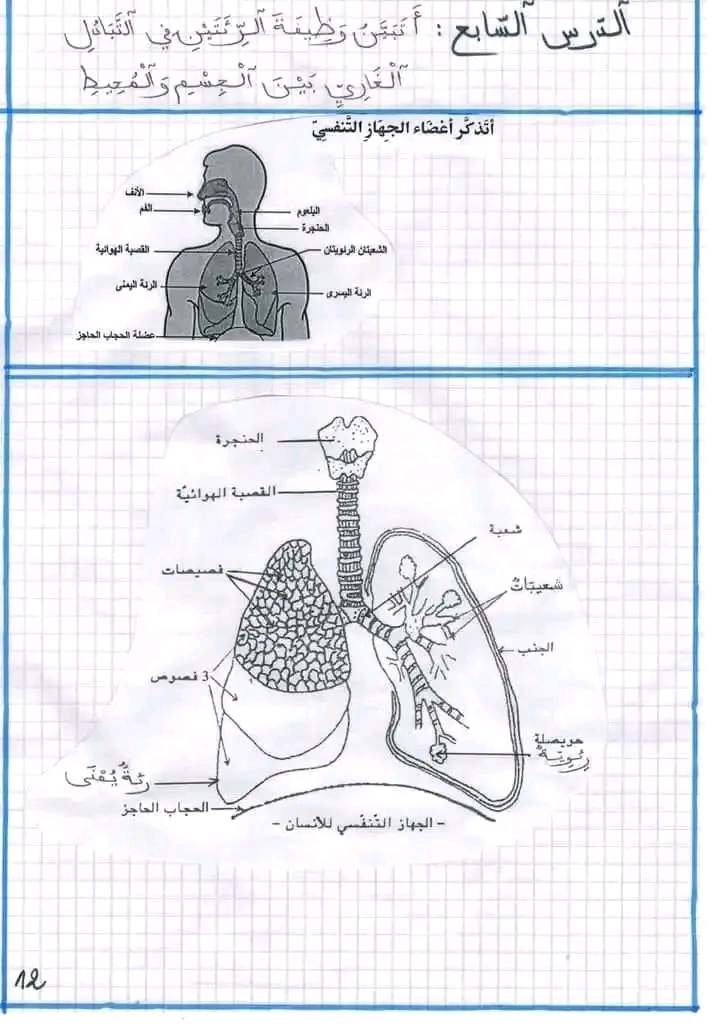 الدرس السابع : أَتَبَيَّنُ وَظِيفَةَ الرِّئَتَيْنِ فِي التَّبَادُلِ
الْغَازِيِّ بَيْنَ الْجِسْمِ وَالْمُحِيطِ
أتذكَّر أعْضَاء الجِهَازِ التَّنفسِيّ
الأنف
الفم
البلعوم
الحنجرة
القصبة الهوائية
الشعبتان الرئويتان
الرئة اليمنى
الرئة اليسرى
عضلة الحجاب الحاجز
الحنجرة
القصبة الهوائيّة
شعبة
فصيصات
شعيبَاتٌ
الجنب
3 فصوص
حويصلة
رِئَوِيَّةٌ
رِئَةٌ يُمْنَى
الحجاب الحاجز
- الجهاز التّنفّسي للأنسان -
12